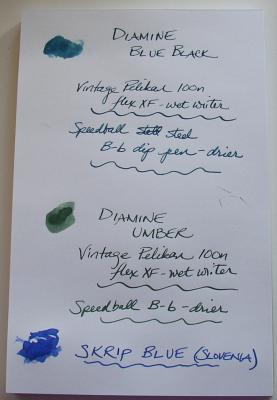 DIAMINE
BLUE BLACK
Vintage Pelikan 100n
flex XF - wet writer
Speedball stell steel
B-6 dip pen - drier
DIAMINE
UMBER
Vintage Pelikan 100n
flex XF - wet writer
Speedball B-6 - drier
SKRIP BLUE (SLOVENIA)